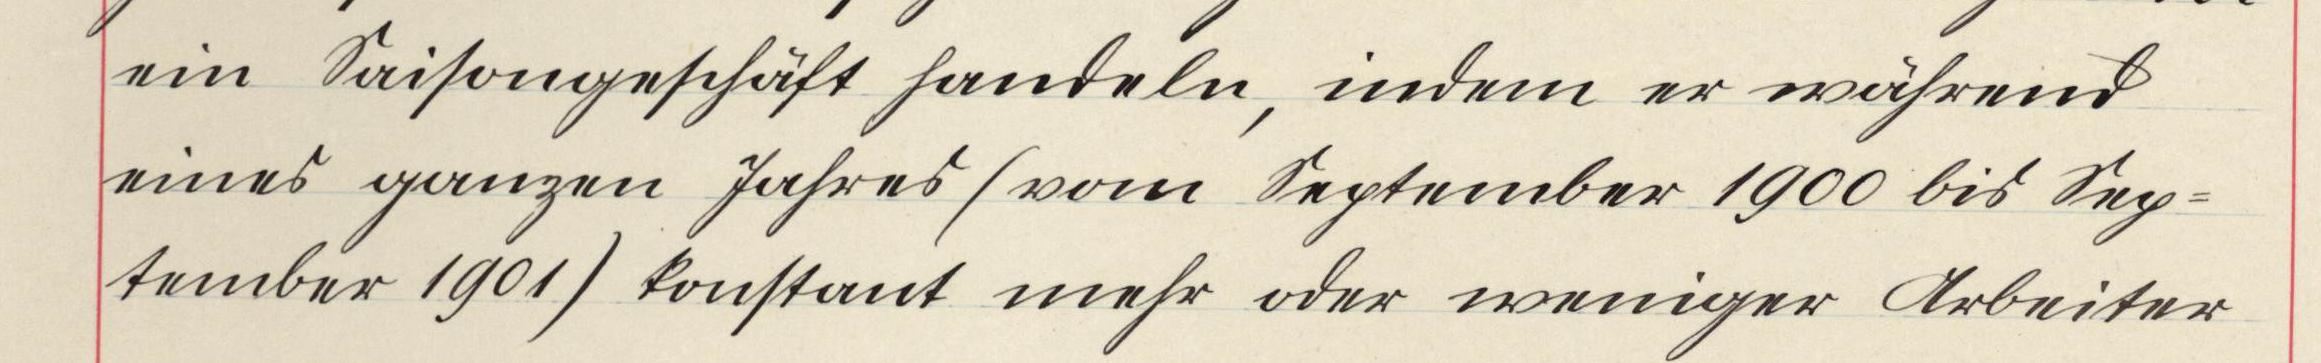 ein Saisongeschäft handeln, indem er während
eines ganzen Jahres (vom September 1900 bis Sep=
tember 1901) konstant mehr oder weniger Arbeiter